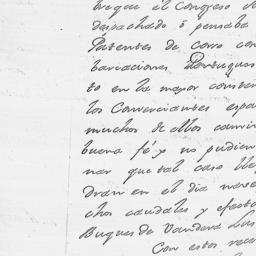 breque el Congreso de
despachado ó pensaba
Patentes de Corso con
barcaciones Portugues
to en la mayor conster
los Comerciantes espa
muchos de ellos camin
buena fé, y no pudien
nar que tal caso lle
dran en el dia nave
chos caudales y efecto
Buques de Vandera Lus
Con estos rece